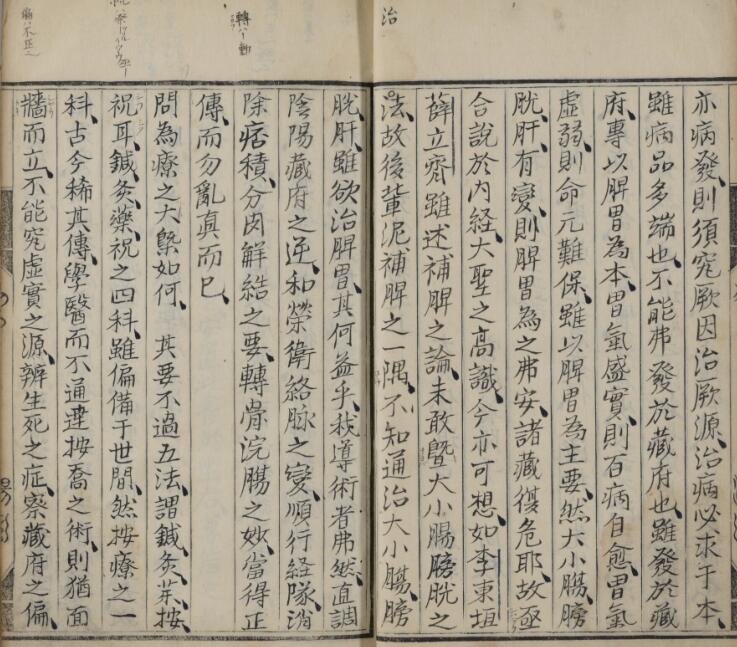 治
亦病發則須究厥因治厥源治病必求于本
雖病品多端也不能弗發於藏府也雖發於藏
府專以脾胃為本胃氣盛實則百病自愈胃氣
虛弱則命元難保雖以脾胃為主要然大小腸膀
胱肝有變則脾胃為之弗安諸藏復危耶故極
合說於内経大聖之高識今亦可想如李東垣
薛立齋雖述補脾之論未敢曁大小腸膀胱之
法故後輩泥補脾之一隅不知通治大小腸膀
胱肝雖欲治脾胃其何益乎我導術者弗然直調
陰陽藏府之逆和榮衛絡脉之變順行経隧消
除痞積分囟解結之要轉骨浣腸之妙當得正
傳而勿亂真而已
問為療之大槩如何 其要不過五法謂鍼灸茶按
祝耳鍼灸藥祝之四科雖偏備于世間然按療之一
科古今稀其傳學醫而不通達按喬之術則猶面
牆而立不能究虛實之源辨生死之症察藏府之偏
轉ハ動
偏ハ不正